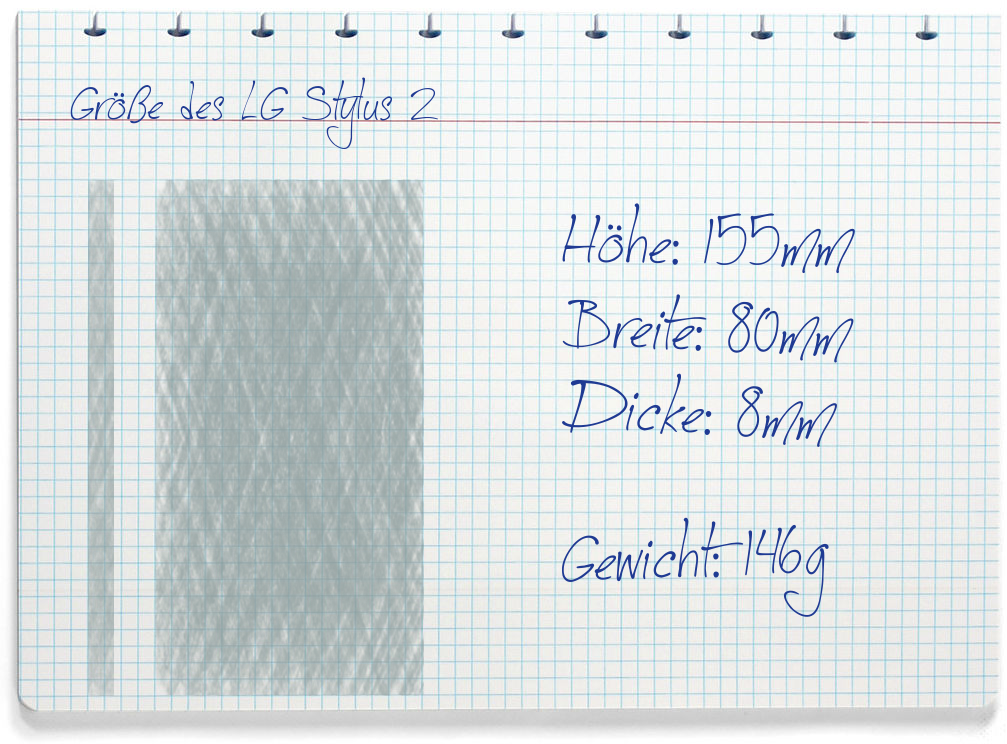 Größe des LG Stylus 2
Höhe: 155mm
Breite: 80mm
Dicke: 8mm
Gewicht: 146g